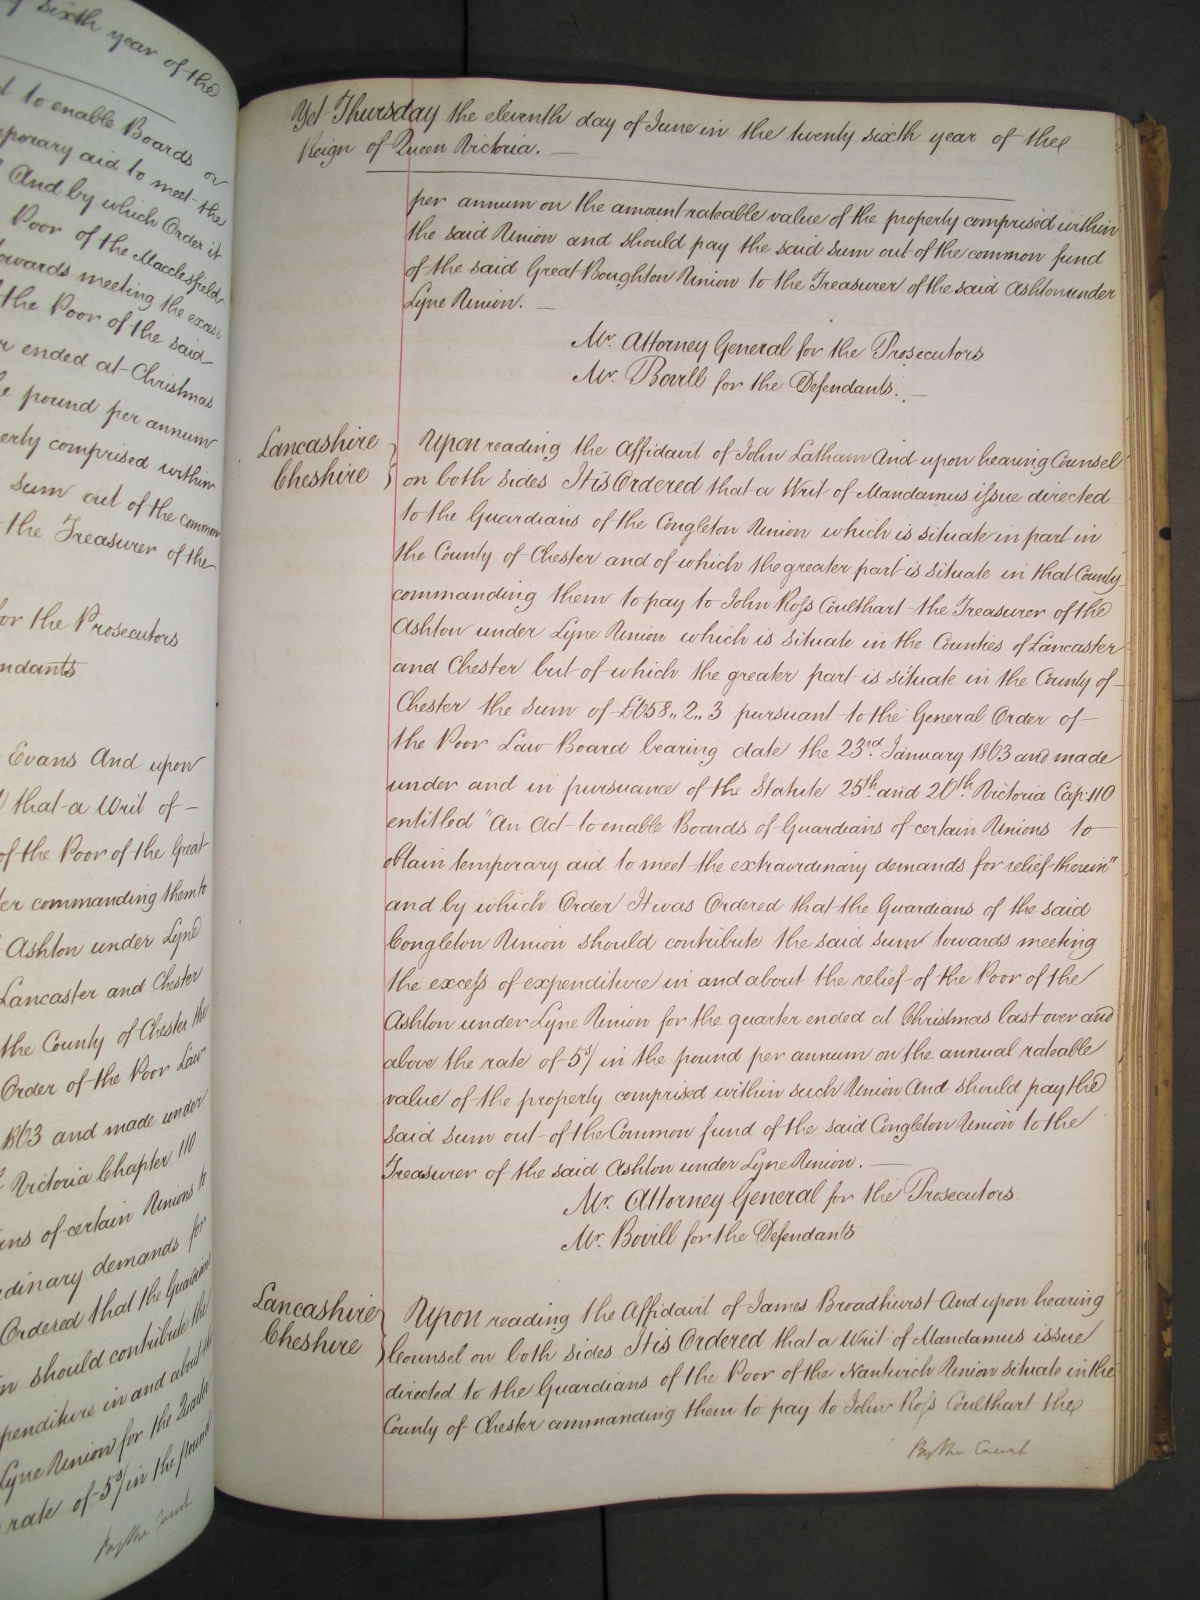 sixth year of the
to enable Boards or
temporary aid to meet the
And by which Order it
Poor of the Macclesfield
towards meeting the excess
the Poor of the said
ended at Christmas
pound per annum
comprised within
sum out of the common
the Treasurer of the
for the Prosecutors
Evans And upon
that a Writ of
of the Poor of the Great
commanding them to
Ashton under Lyne
Lancaster and Chester
the County of Chester the
Order of the Poor Law
1863 and made under
Victoria Chapter 110
of certain Unions to
demands for
Ordered that the Guardians
should contribute the
in and about the
Lyne Union for the Quarter
rate of 5s/ in the pound
By the Court
Yet Thursday the eleventh day of June in the twenty sixth year of the
Reign of Queen Victoria. —
per annum on the amount rateable value of the property comprised within
the said Union and should pay the said sum out of the common fund
of the said Great Boughton Union to the Treasurer of the said Ashton under
Lyne Union. —
Mr. Attorney General for the Prosecutors
Mr. Bovill for the Defendants. —
Lancashire
Cheshire
Upon reading the Affidavit of John Latham And upon hearing Counsel
on both sides It is Ordered that a Writ of Mandamus issue directed
to the Guardians of the Congleton Union which is situate in part in
the County of Chester and of which the greater part is situate in that County
commanding them to pay to John Ross Coulthart the Treasurer of the
Ashton under Lyne Union which is situate in the Counties of Lancaster
and Chester but of which the greater part is situate in the County of
Chester the sum of £658,, 2,, 3 pursuant to the General Order of
the Poor Law Board bearing date the 23rd. January 1863 and made
under and in pursuance of the Statute 25th. and 26th. Victoria Cap: 110
entitled "An Act to enable Boards of Guardians of certain Unions to
obtain temporary aid to meet the extraordinary demands for relief therein"
and by which Order It was Ordered that the Guardians of the said
Congleton Union should contribute the said sum towards meeting
the excess of expenditure in and about the relief of the Poor of the
Ashton under Lyne Union for the quarter ended at Christmas last over and
above the rate of 5s/ in the pound per annum on the annual rateable
value of the property comprised within such Union And should pay the
said sum out of the Common fund of the said Congleton Union to the
Treasurer of the said Ashton under Lyne Union. —
Mr. Attorney General for the Prosecutors
Mr. Bovill for the Defendants
Lancashire
Cheshire
Upon reading the Affidavit of James Broadhurst And upon hearing
Counsel on both sides It is Ordered that a Writ of Mandamus issue
directed to the Guardians of the Poor of the Nantwich Union situate in the
County of Chester commanding them to pay to John Ross Coulthart the
By the Court